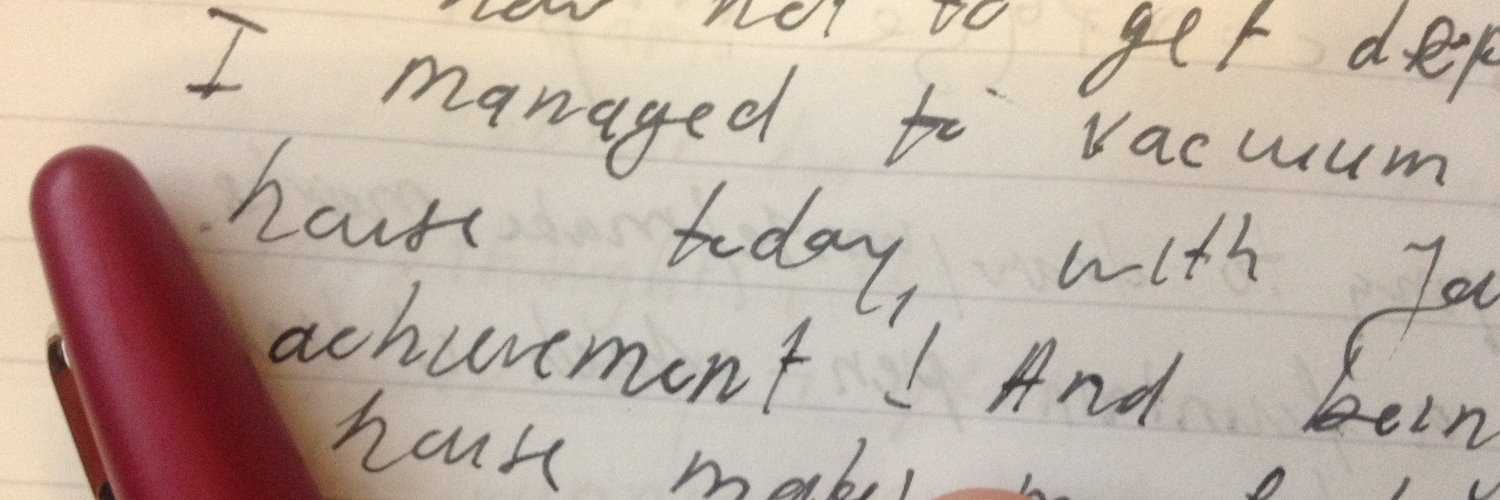 how not to get dep
I managed to vacuum
house today, with
achievement! And bein
house makes